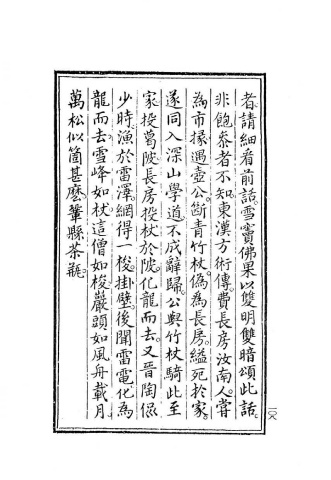 者請細看前話雪竇佛果以雙明雙暗頌此話
非飽叅者不知東漢方術傳費長房汝南人嘗
為市掾遇壺公斷青竹杖偽為長房縊死於家
遂同入深山學道不成辭歸公與竹杖騎此至
家投葛陂長房投杖於陂化龍而去又晉陶侃
少時漁於雷澤網得一梭掛壁後聞雷電化為
龍而去雪峰如杖這僧如梭巖頭如風舟載月
萬松似箇甚麽鞏縣茶瓶